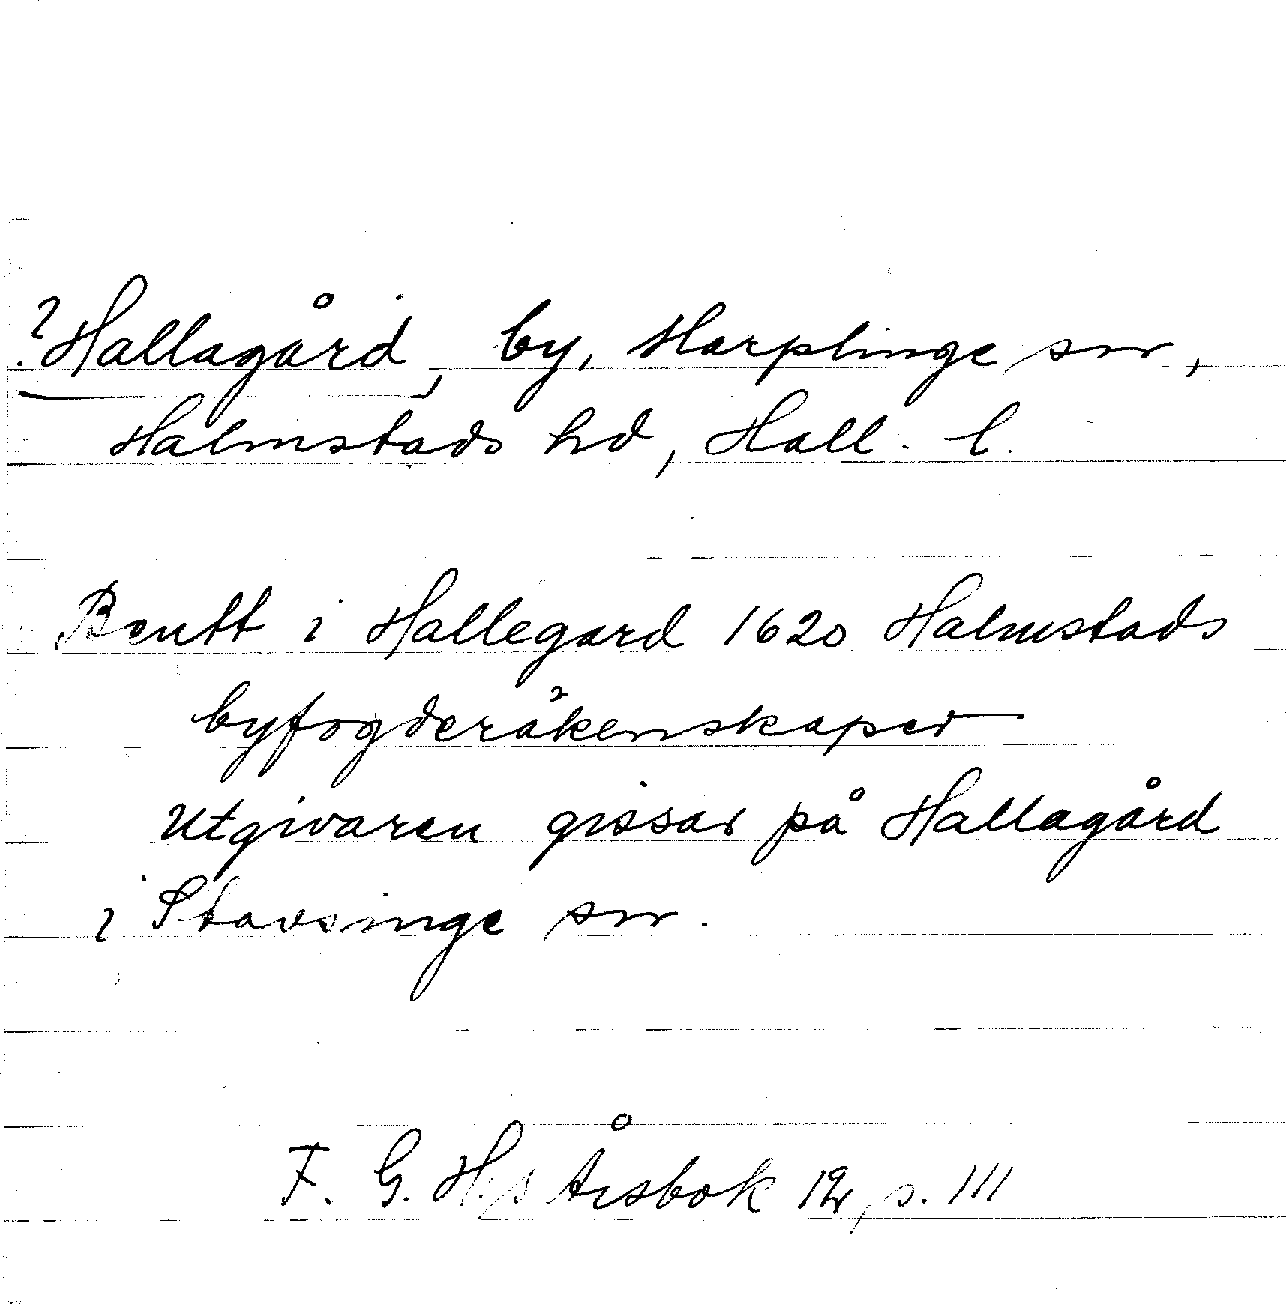 ? Hallagård, by, Harplinge sn,
Halmstads hd, Hall. l.
Bentt i Hallegard 1620 Halmstads
byfogderäkenskaper
Utgivaren gissar på Hallagård
i Stavsinge sn.
F. G. H:s Årsbok 12, s. 111